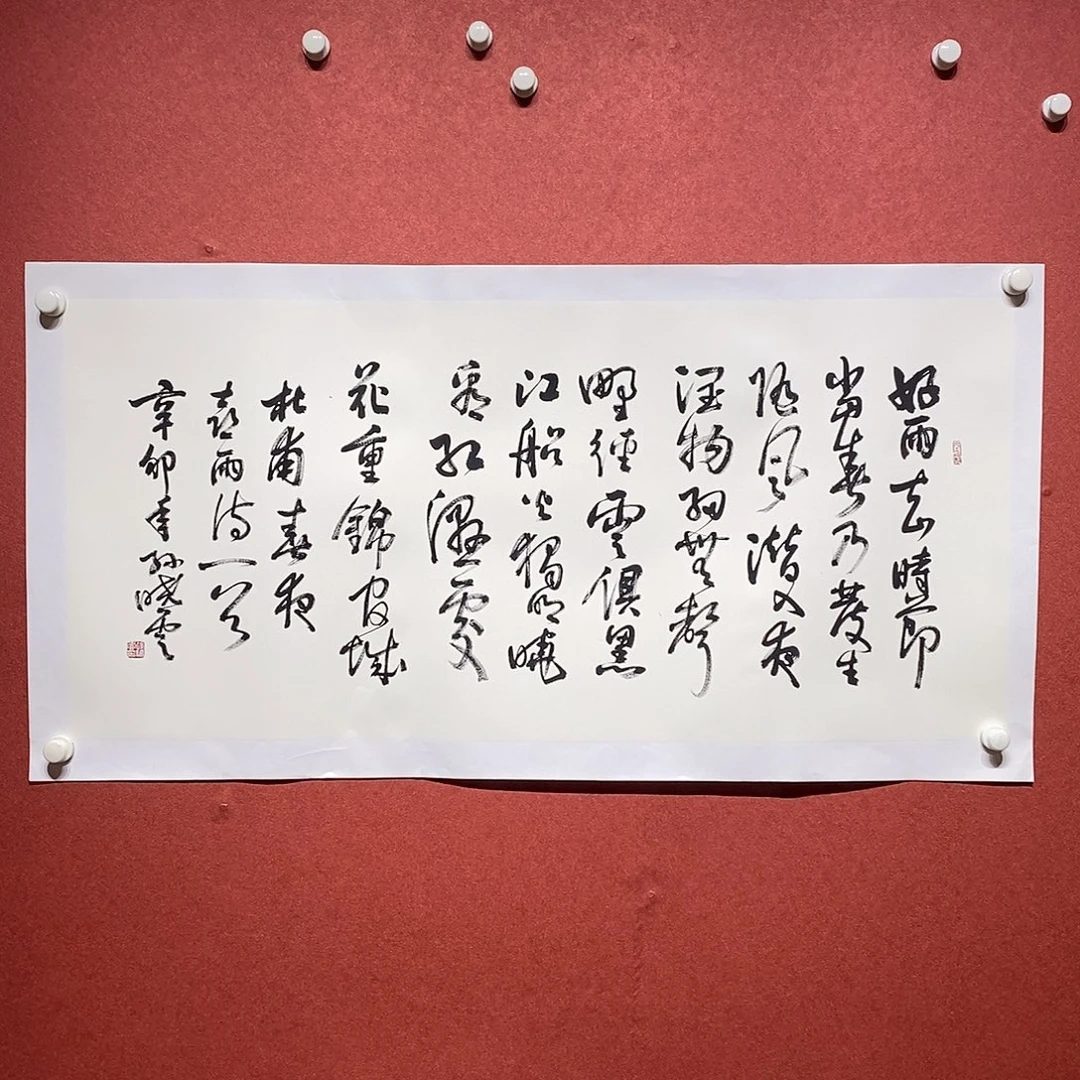 好雨知時節
當春乃發生
隨風潛入夜
潤物細無聲
野徑雲俱黑
江船火獨明曉
看紅濕處
花重錦官城
杜甫春夜
喜雨詩一首
辛卯年孫曉雲